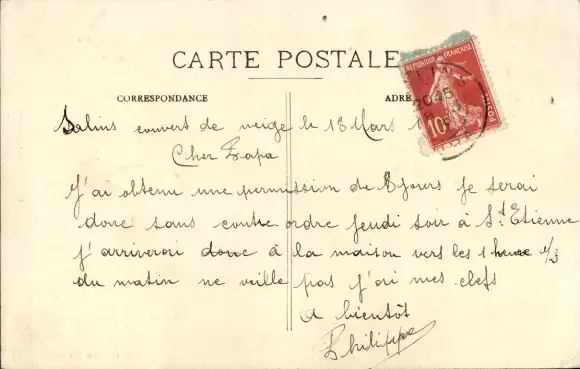 CARTE POSTALE
CORRESPONDANCE
ADRE
RÉPUBLIQUE FRANÇAISE
POSTES
10
2045
Salins couvert de neige le 13 Mars 1
Cher Papa
J'ai obtenu une permission de 8 jours je serai
donc sans contre ordre jeudi soir à St. Etienne
j'arriverai donc à la maison vers les 1 heure 1/2
du matin ne veille pas j'ai mes clefs
A bientôt
Philippe